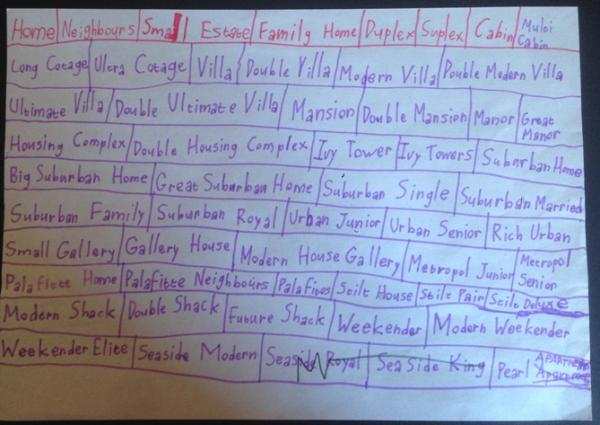 Home Neighbours Small Estate Family Home Duplex Suplex Cabin Multi Cabin
Long Cotage Ultra Cotage Villa Double Villa Modern Villa Double Modern Villa
Ultimate Villa Double Ultimate Villa Mansion Double Mansion Manor Great Manor
Housing Complex Double Housing Complex Ivy Tower Ivy Towers Suburban Home
Big Suburban Home Great Suburban Home Suburban Single Suburban Married
Suburban Family Suburban Royal Urban Junior Urban Senior Rich Urban
Small Gallery Gallery House Modern House Gallery Metropol Junior Metropol Senior
Palafitte Home Palafitte Neighbours Palafines Stilt House Stilt Pair Stilt Deluxe
Modern Shack Double Shack Future Shack Weekender Modern Weekender
Weekender Elite Seaside Modern Seaside Royal Sea Side King Pearl